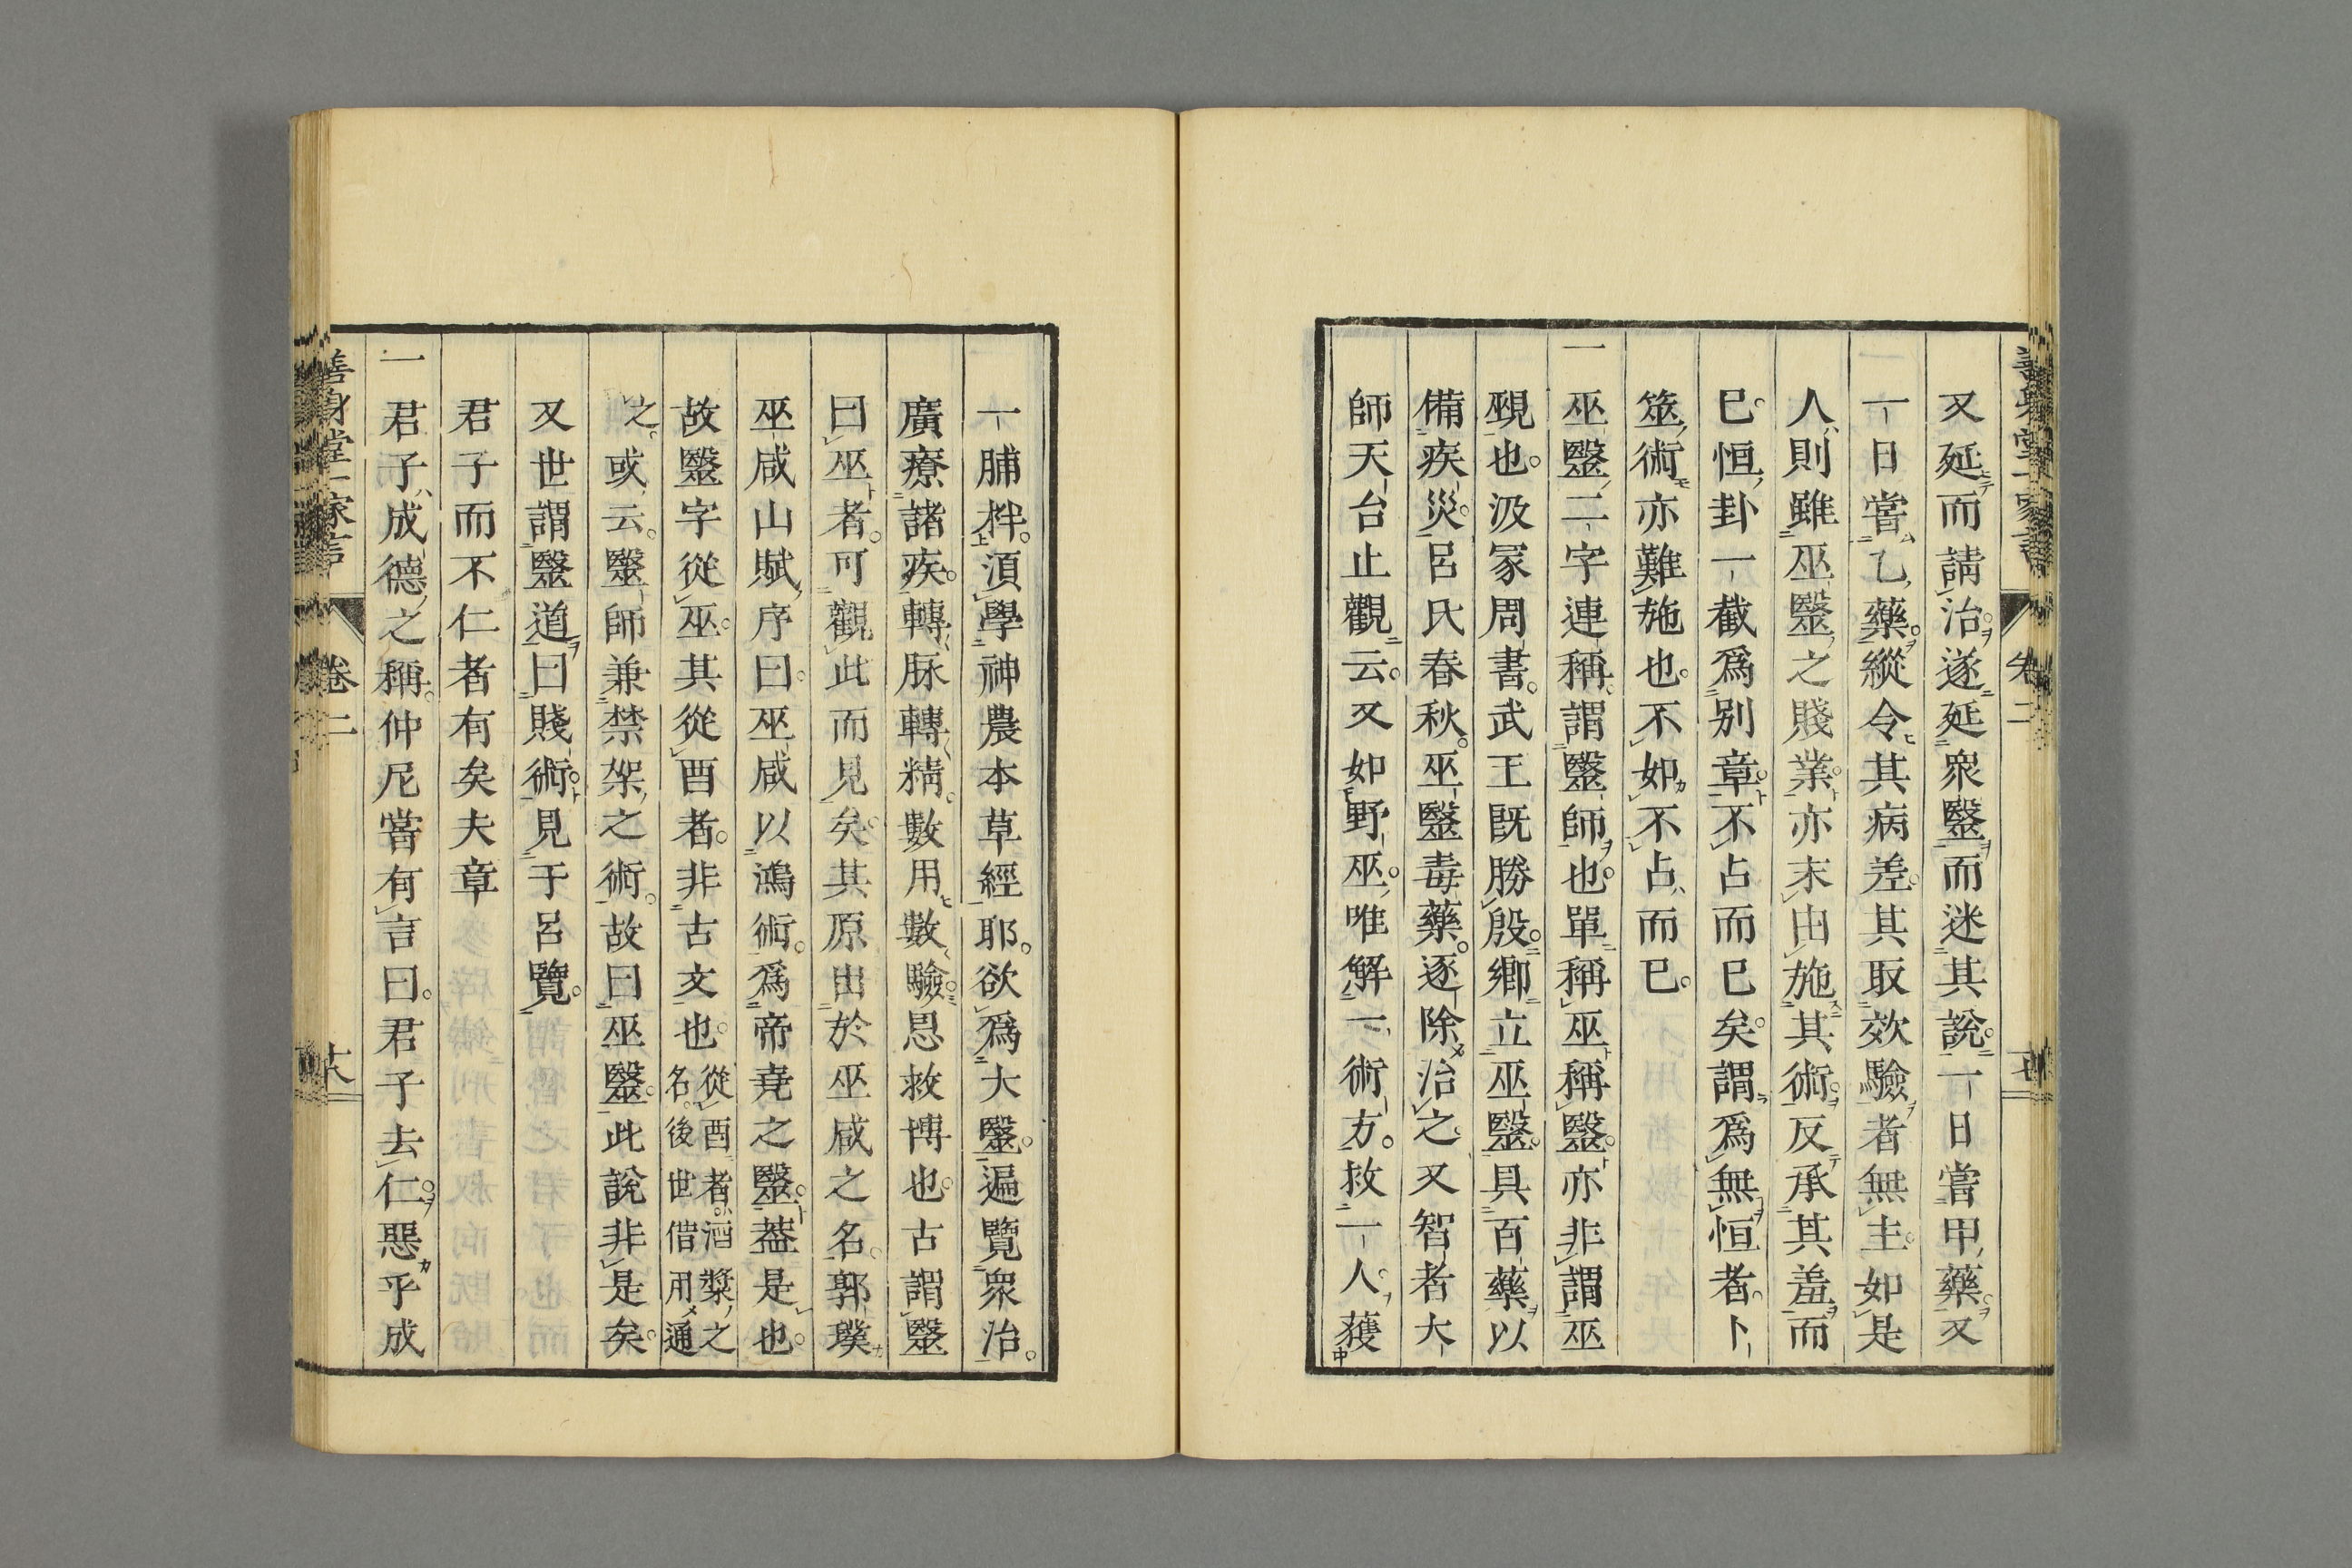 又延而請治遂延衆毉而迷其說一日嘗甲藥又
一日嘗乙藥縱令其病差其取效驗者無主如是
人則雖巫毉之賤業亦末由施其術反承其羞而
已恒卦一截爲別章不占而已矣謂爲無恒者卜
筮術亦難施也不如不占而已
一巫毉二字連稱謂毉師也單稱巫稱毉亦非謂巫
覡也汲冢周書武王既勝殷鄉立巫毉具百藥以
備疾災呂氏春秋巫毉毒藥逐除治之又智者大
師天台止觀云又如野巫唯解一術方救一人獲
一脯柈湏學神農本草經耶欲爲大毉遍覽衆治
廣療諸疾轉脉轉精數用數驗恩救博也古謂毉
曰巫者可觀此而見矣其原出於巫咸之名郭璞
巫咸山賦序曰巫咸以鴻術爲帝堯之毉葢是也
故毉字從巫其從酉者非古文也從酉者酒漿之
名後世借用通
之或云毉師兼禁架之術故曰巫毉此說非是矣
又世謂毉道曰賤術見于呂覽
君子而不仁者有矣夫章
一君子成德之稱仲尼嘗有言曰君子去仁惡乎成
善身堂一家言
卷二
十八
卷二
十七